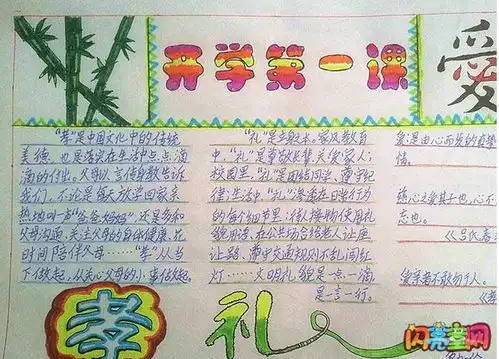 开学第一课
爱
“孝”是中国文化中的传统
美德，也是落实在生活中点点滴
滴的付出。父母以言传身教告诉
我们，不论是每天放学回家亲
热地叫一声“爸爸妈妈”，还是多和
父母沟通，关注父母的身体健康，花
时间陪伴父母……“孝”从当
下做起，从关心父母的小事做起。
“礼”是立身之本。家风教育
中，“礼”是尊敬长辈、关爱家人；
校园里，“礼”是团结同学、遵守纪
律；生活中，“礼”渗透在日常行为
的每个细节里：待人接物使用礼
貌用语，在公共场合给老人让座
让路，遵守交通规则不乱闯红
灯……文明礼貌是一点一滴，
是一言一行。
爱是由心而发的真挚
情。
慈心之爱其子也，心不
忘也。
《吕氏春
爱亲者不敢勿于人。
《孝
孝
礼
闪亮童网